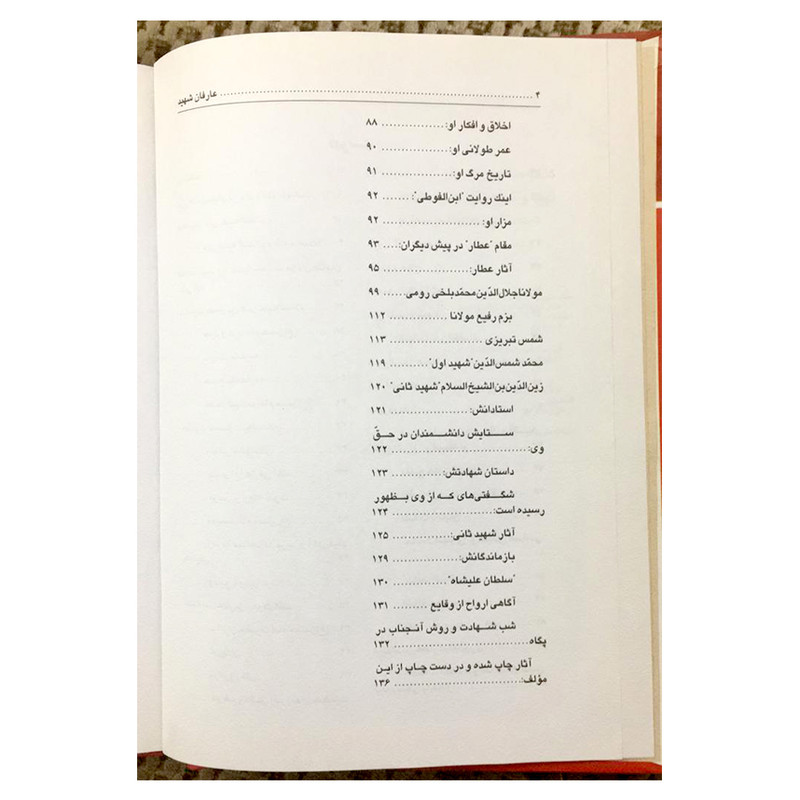 ۴ .......... عارفان شهید
اخلاق و افکار او: .......... ۸۸
عمر طولانی او: .......... ۹۰
تاریخ مرگ او: .......... ۹۱
اینك روایت "ابن‌الفوطی": .......... ۹۲
مزار او: .......... ۹۲
مقام "عطار" در پیش دیگران: .......... ۹۳
آثار عطار: .......... ۹۵
مولانا جلال‌الدّین محمّد بلخی رومی .......... ۹۹
بزم رفیع مولانا .......... ۱۱۲
شمس تبریزی .......... ۱۱۳
محمّد شمس‌الدّین "شهید اول" .......... ۱۱۹
زین‌الدّین‌بن‌الشیخ‌السلام "شهید ثانی" ۱۲۰
استادانش: .......... ۱۲۱
ستایش دانشمندان در حقّ
وی: .......... ۱۲۲
داستان شهادتش: .......... ۱۲۳
شگفتی‌های که از وی بظهور
رسیده است: .......... ۱۲۴
آثار شهید ثانی: .......... ۱۲۵
بازماندگانش: .......... ۱۲۹
"سلطان علیشاه" .......... ۱۳۰
آگاهی ارواح از وقایع .......... ۱۳۱
شب شهادت و روش آنجناب در
پگاه .......... ۱۳۲
آثار چاپ شده و در دست چاپ از این
مؤلف: .......... ۱۳۶